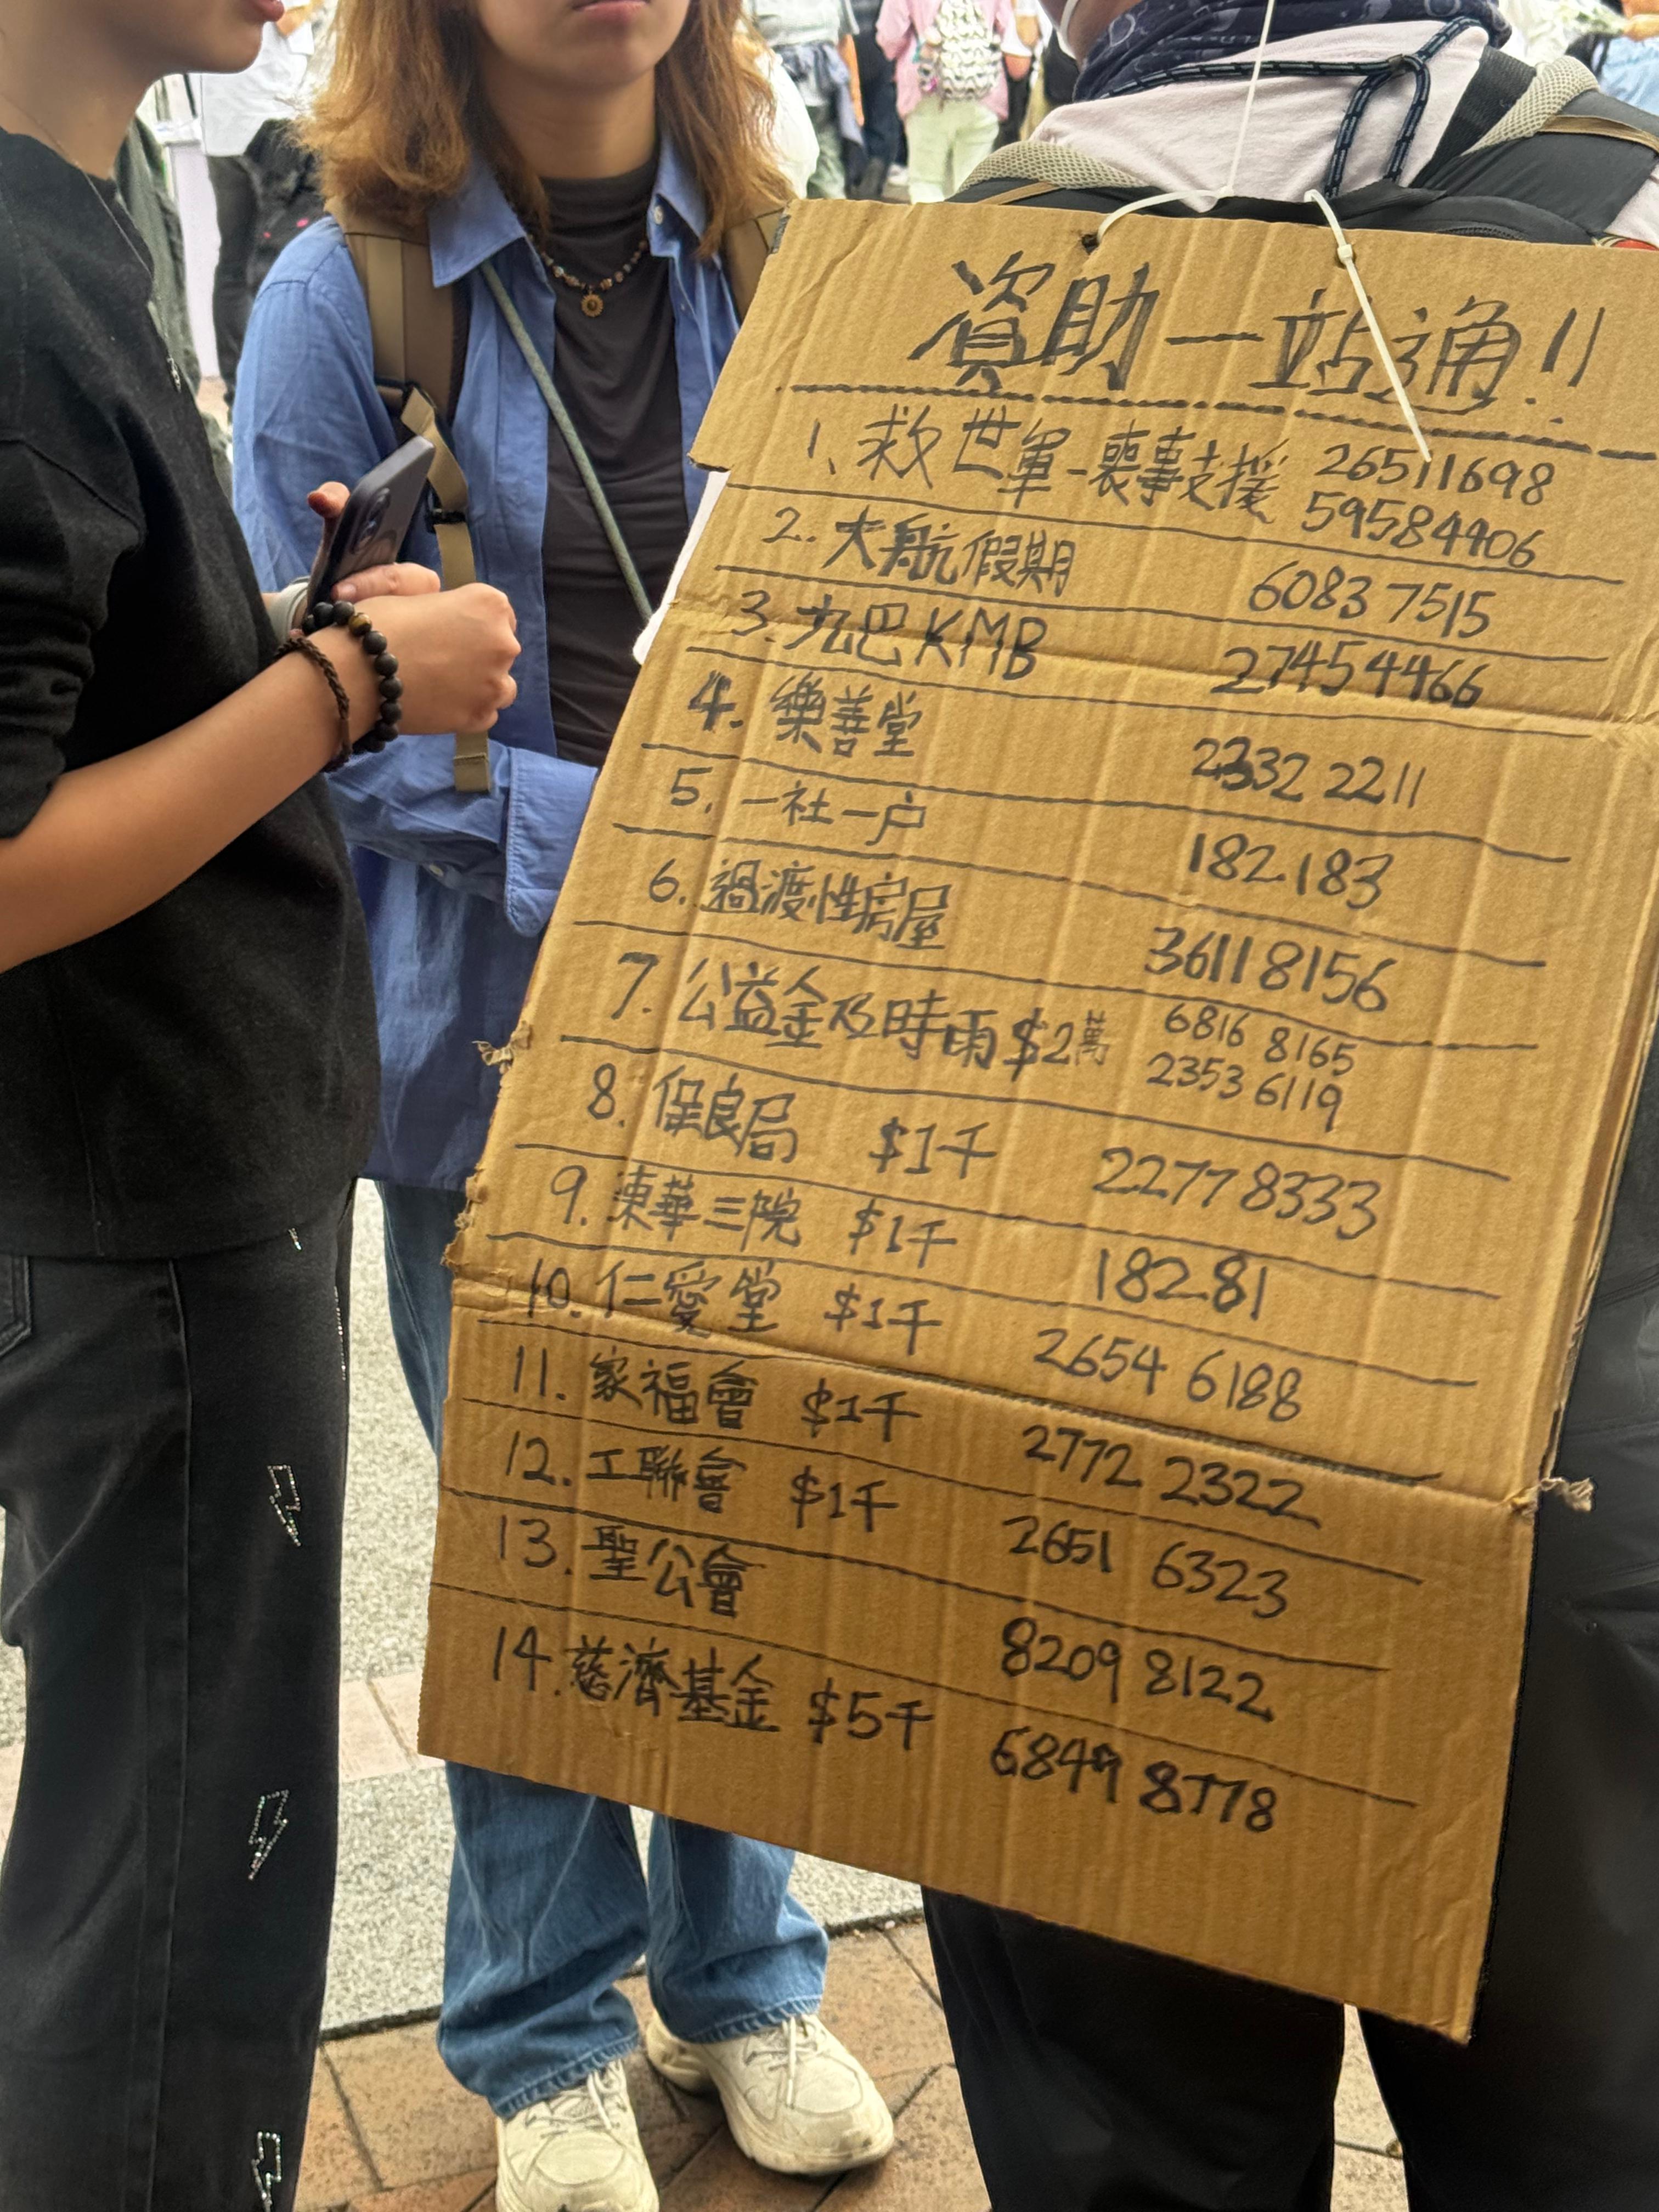 資助一站通!!
1. 救世軍-喪事支援 26511698
59584906
2. 大航假期 6083 7515
3. 九巴 KMB 27454466
4. 樂善堂 2332 2211
5. 一社一户 182 183
6. 過渡性房屋 3611 8156
7. 公益金及時雨 $2萬 6816 8165
2353 6119
8. 保良局 $1千 2277 8333
9. 東華三院 $1千 18281
10. 仁愛堂 $1千 2654 6188
11. 家福會 $1千 2772 2322
12. 工聯會 $1千 2651 6323
13. 聖公會 8209 8122
14. 慈濟基金 $5千